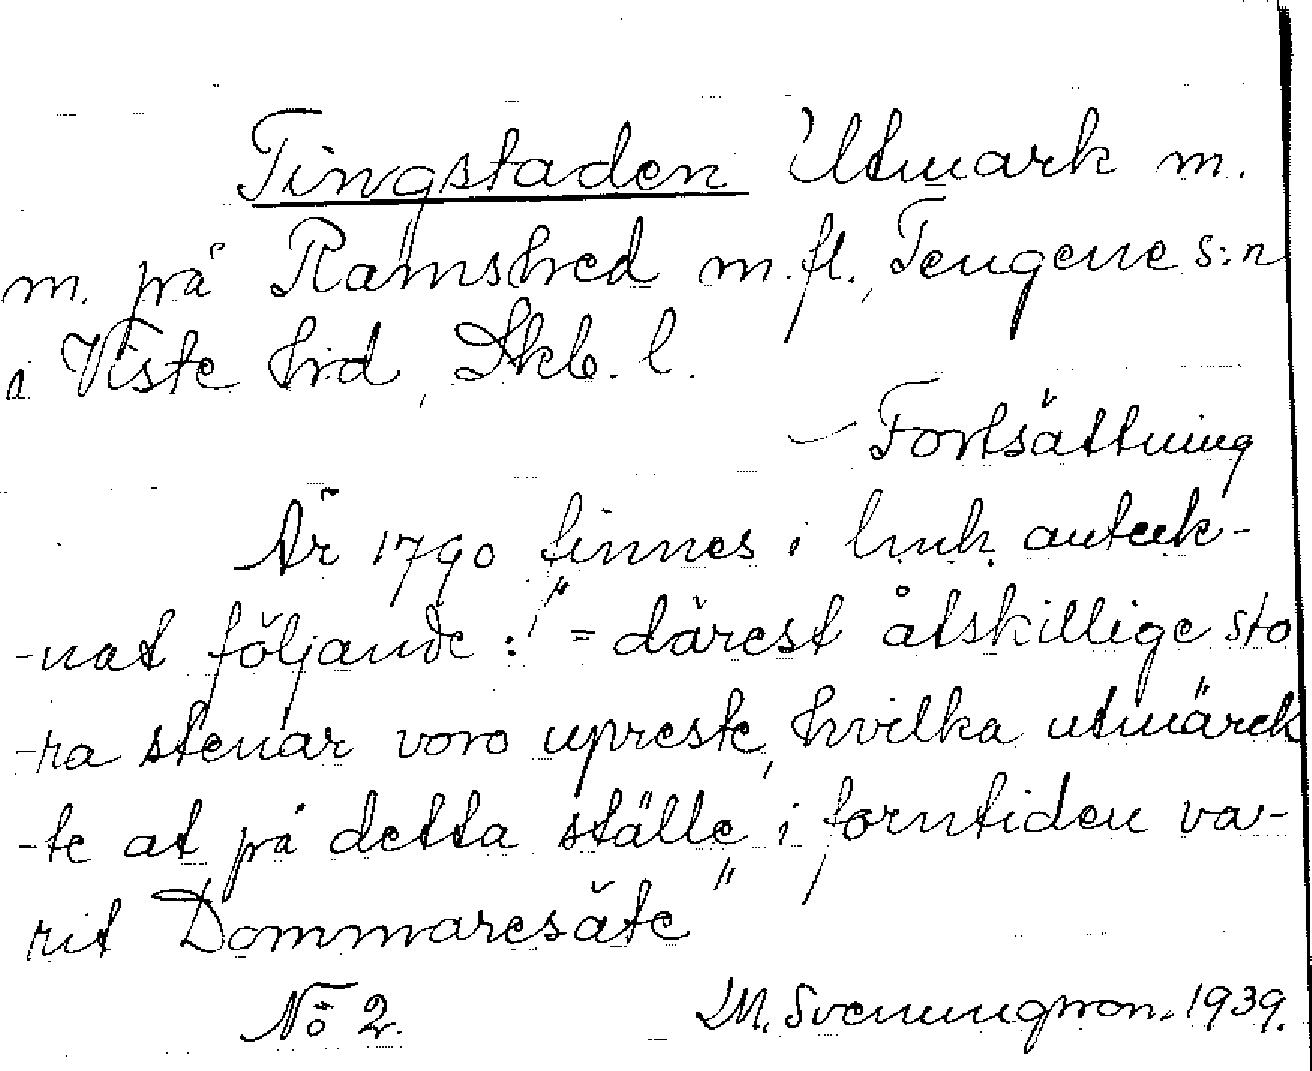 Tingstaden Utmark m.
m. på Ramshed m. fl., Tengene s:n
i Viste hrd, Skb. l.
– Fortsättning
År 1790 finnes i lmh. anteck-
-nat följande: "= därest åtskillige sto
-ra stenar voro upreste, hvilka utmärck
-te at på detta ställe, i forntiden va-
rit Dommaresäte"
No 2. M. Svenungsson. 1939.